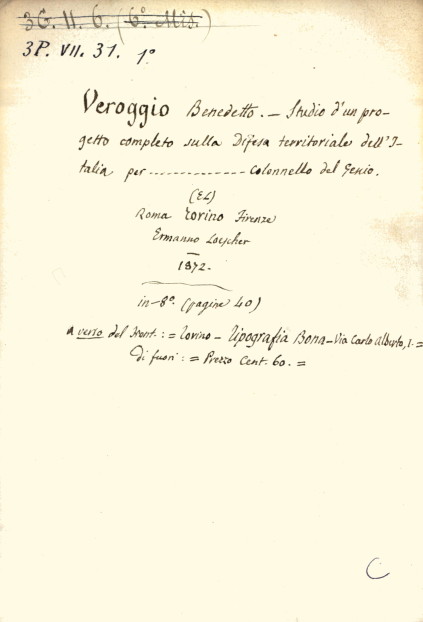 3G. II. 6. (6° Mis.)
3P. VII. 31. 1°
Veroggio Benedetto. — Studio d'un pro-
getto completo sulla Difesa territoriale dell'I-
talia per .............. Colonnello del Genio.
(EL)
Roma Torino Firenze
Ermanno Loescher
1872.
in-8°. (pagine 40)
a verso del front. : = Torino — Tipografia Bona — Via Carlo Alberto, 1. =
di fuori : = Prezzo Cent. 60. =
C